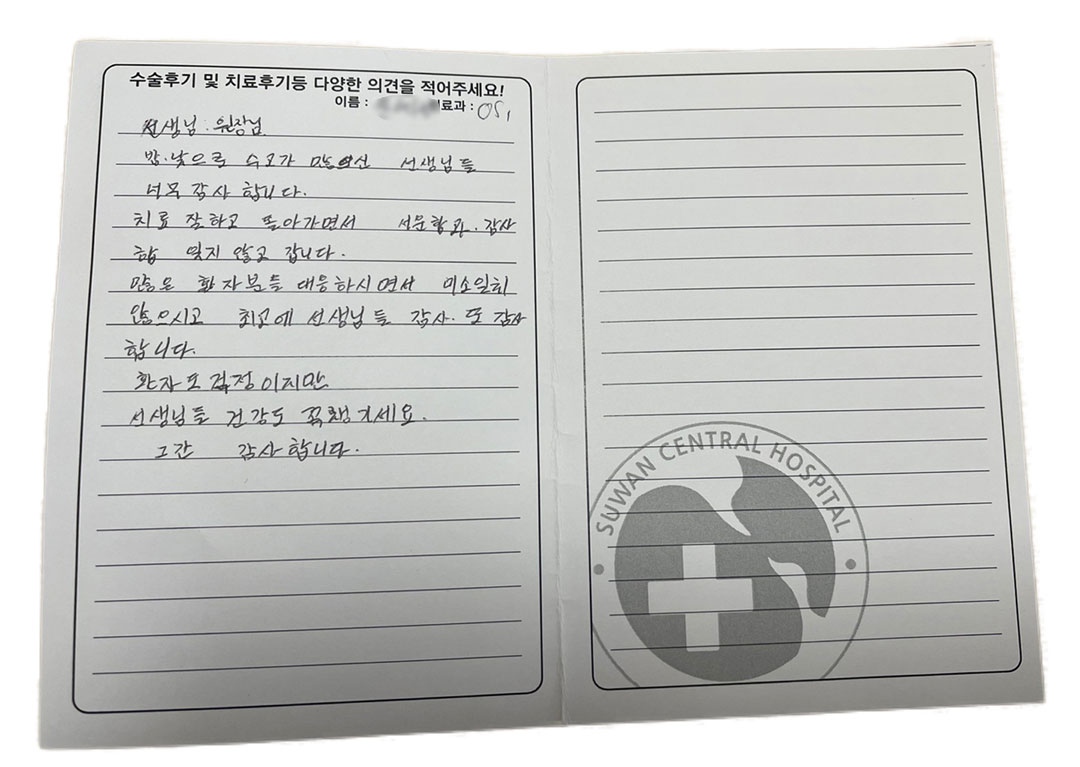 수술후기 및 치료후기등 다양한 의견을 적어주세요!
이름 : 료과 : OS,
선생님. 원장님
밤.낮으로 수고가 많으신 선생님들
너무 감사 합니다.
치료 잘하고 돌아가면서 서운함과. 감사
함 잊지 않고 갑니다.
많은 환자분들 대응하시면서 미소잃치
않으시고 최고에 선생님들 감사. 또 감사
합니다.
환자도 걱정이지만
선생님들 건강도 꼭챙기세요.
그간 감사합니다.
SUWAN CENTRAL HOSPITAL